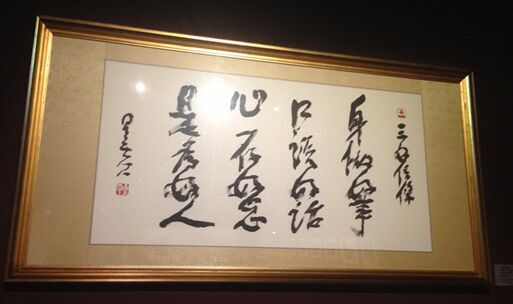 三好信條
身做好事
口說好話
心存好念
是為好人
星云